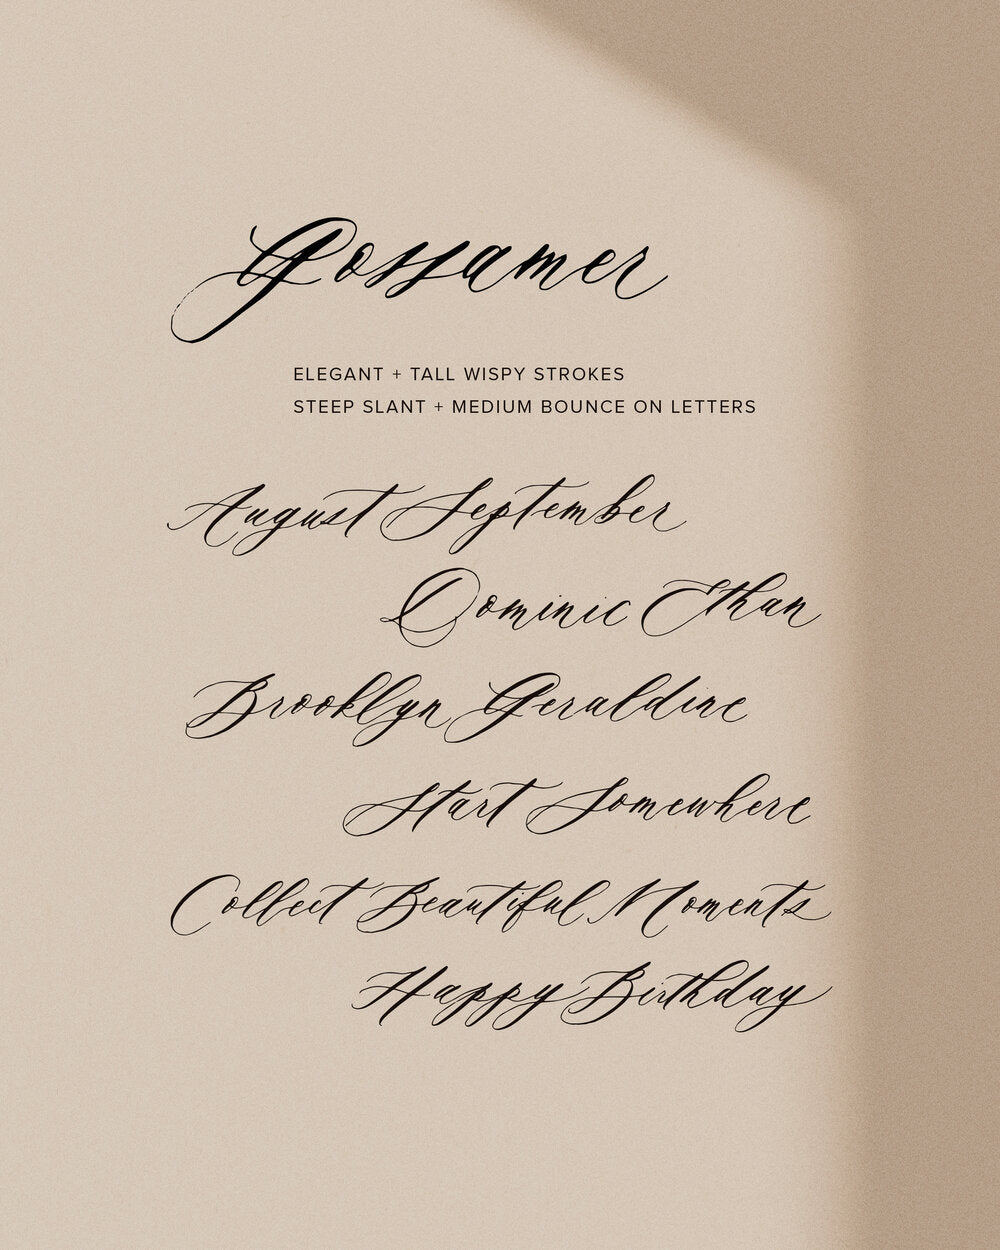 Gossamer
ELEGANT + TALL WISPY STROKES
STEEP SLANT + MEDIUM BOUNCE ON LETTERS
August September
Dominic Ethan
Brooklyn Geraldine
Start Somewhere
Collect Beautiful Moments
Happy Birthday